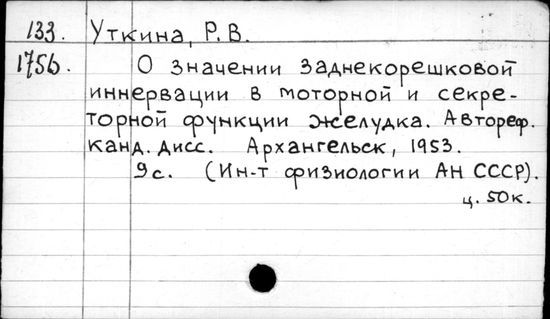 133. Уткина, Р. В.
1756. О значении заднекорешковой
иннервации в моторной и секре-
торной функции желудка. Автореф.
канд. дисс. Архангельск, 1953.
9с. (Ин-т физиологии АН СССР).
ц. 50к.